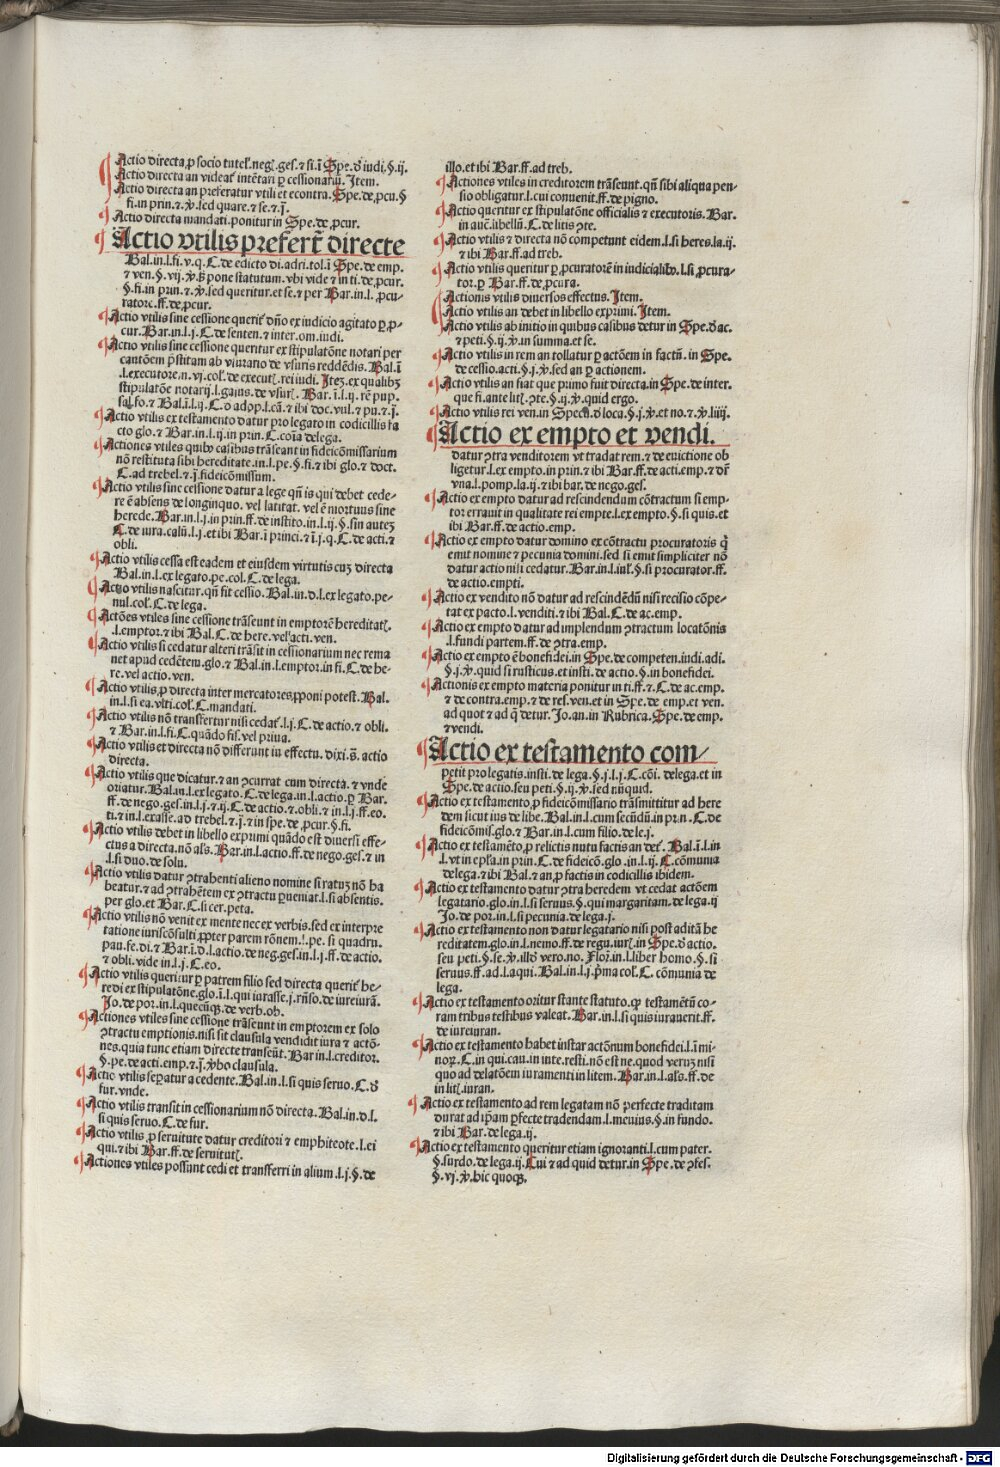 Actio directa ꝓ socio tutel̛. negꝭ. ges. ⁊ si. ī Spe. ď iudi. §. ij.
Actio directa an videat̛ intētari ꝑ cessionariū. Item.
Actio directa an preferatur vtili et econtra. Spe. de ꝓcu. §
fi. in prin. ⁊ .℣. sed quare. ⁊ se. ⁊ .j.
Actio directa mandati. ponitur in Spe. de ꝓcur.
Actio vtilis prefert̛ directe
Bal. in .l. fi. v. q. C. de edicto di. adri. tol. ī Spe. de emp.
⁊ ven. §. vij. .℣. pone statutum. vbi vide ⁊ in ti. de ꝓcur.
§. fi. in prin. ⁊ .℣. sed queritur. et se. ⁊ per Bar. in .l. ꝓcu-
ratore. ff. de ꝓcur.
Actio vtilis sine cessione querit̛ dn̄o ex iudicio agitato ꝑ ꝓ-
cur. Bar. in .l. j. C. de senten. ⁊ inter. om. iudi.
Actio vtilis sine cessione queritur ex stipulatōne notari per
cantōem p̄stitam ab vsurario de vsuris reddēdis. Bal. ī
.l. executorē. n. vj. col̛. de execut̛. rei iudi. Itez ex qualibꝫ
stipulatōne notarij .l. gaius. de vsur̛. Bar. ī .l. ij. rē pup.
sal̛. fo. ⁊ Bal. ī .l. ij. C. ð adop. l. eā. ⁊ ibi doc. vul. ⁊ pu. ⁊ .j.
Actio vtilis ex testamento datur pro legato in codicillis fa
cto glo. ⁊ Bar. in .l. ij. in prin. C. cōia de lega.
Actiones vtiles quibꝰ casibus trāseant in fideicōmissarium
nō restituta sibi hereditate. in .l. pe. §. fi. ⁊ ibi glo. ⁊ doct.
C. ad trebel. ⁊ .j. fideicōmissum.
Actio vtilis sine cessione datur a lege qn̄ is qui debet cede-
re ē absens de longinquo. vel latitat. vel ē mortuus sine
herede. Bar. in .l. j. in prin. ff. de instito. in .l. ij. §. sin autez
C. de iura. calū. l. j. et ibi Bar. ī princi. ⁊ ī .j. q. C. de acti. ⁊
obli.
Actio vtilis cessa est eadem et eiusdem virtutis cuz directa
Bal. in .l. ex legato. pe. col. C. de lega.
Actio vtilis nascitur. qn̄ fit cessio. Bal. in .d. l. ex legato. pe-
nul. col̛. C. de lega.
Actōes vtiles sine cessione trāseunt in emptorē hereditat̛.
.l. emptor. ⁊ ibi Bal. C. de here. vel̛ acti. ven.
Actio vtilis si cedatur alteri trāsit in cessionarium nec rema
net apud cedētem. glo. ⁊ Bal. in .l. emptor. in fi. C. de he-
re. vel actio. ven.
Actio vtilis ꝓ directa inter mercatores ꝓponi potest. Bal.
in .l. si ea. vlti. col̛. C. mandati.
Actio vtilis nō transfertur nisi cedat̛. l. j. C. de actio. ⁊ obli.
⁊ Bar. in .l. fi. C. quādo fis. vel priua.
Actio vtilis et directa nō differunt in effectu. dixi. s̄. actio
directa.
Actio vtilis que dicatur. ⁊ an ꝯcurrat cum directa. ⁊ vnde
oriatur. Bal. in .l. ex legato. C. de lega. in .l. actio. ꝑ Bar.
ff. de nego. ges. in .l. j. ⁊ ij. C. de actio. ⁊ obli. ⁊ in .l. j. ff. eo.
ti. ⁊ in .l. ex asse. ad trebel. ⁊ .j. ⁊ in spe. de ꝓcur. §. fi.
Actio vtilis debet in libello exp̄imi quādo est diuersi effe-
ctus a directa. nō als̄. Bar. in .l. actio. ff. de nego. ges. ⁊ in
.l. si duo. de solu.
Actio vtilis datur ꝯtrahenti alieno nomine si ratuz nō ha
beatur. ⁊ ad ꝯtrahētem ex ꝯtractu ꝑueniat. l. si absentis.
per glo. et Bar. C. si cer. peta.
Actio vtilis nō venit ex mente nec ex verbis. sed ex interpre
tatione iuriscōsulti ꝓpter parem rōnem. l. pe. si quadru.
pau. fe. di. ⁊ Bar. ī .d. l. actio. de neg. ges. in .l. j. ff. de actio.
⁊ obli. vide in .l. j. C. eo.
Actio vtilis queritur ꝑ patrem filio sed directa querit̛ he-
redi ex stipulatōne. glo. ī .l. qui iurasse. j. rn̄so. de iureiurā.
Jo. de por. in .l. quecūqꝫ. de verb. ob.
Actiones vtiles sine cessione trāseunt in emptorem ex solo
ꝯtractu emptionis. nisi sit clausula vendidit iura ⁊ actō-
nes. quia tunc etiam directe transeūt. Bar in .l. creditor.
§. pe. de acti. emp. ⁊ .j. ℣bo clausula.
Actio vtilis sepatur a cedente. Bal. in .l. si quis seruo. C. ď
fur. vnde.
Actio vtilis transit in cessionarium nō directa. Bal. in .d. l.
si quis seruo. C. de fur.
Actio vtilis ꝓ seruitute datur creditori ⁊ emphiteote. l. ei
qui. ⁊ ibi Bar. ff. de seruitut̛.
Actiones vtiles possunt cedi et transferri in alium. l. j. §. de
illo. et ibi Bar. ff. ad treb.
Actiones vtiles in creditorem trāseunt. qn̄ sibi aliqua pen-
sio obligatur. l. cui conuenit. ff. de pigno.
Actio queritur ex stipulatōne officialis ⁊ executoris. Bar.
in auc̄. libellū. C. de litis ꝯte.
Actio vtilis ⁊ directa nō competunt eidem. l. si heres. la. ij.
⁊ ibi Bar. ff. ad treb.
Actio vtilis queritur ꝑ ꝓcuratorē in iudicialibꝰ. l. si ꝓcura-
tor. ꝑ Bar. ff. de ꝓcura.
Actionis vtilis diuersos effectus. Item.
Actio vtilis an debet in libello exprimi. Item.
Actio vtilis ab initio in quibus casibus detur in Spe. ď ac.
⁊ peti. §. ij. ℣. in summa. et se.
Actio vtilis in rem an tollatur ꝑ actōem in factū. in Spe.
de cessio. acti. §. j. ℣. sed an ꝑ actionem.
Actio vtilis an fiat que primo fuit directa. in Spe. de inter.
que fi. ante lit̛. ꝯte. §. ij. ℣. quid ergo.
Actio vtilis rei ven. in Specu̅. ď loca. §. j. ℣. et no. ⁊ .℣. liiij.
Actio ex empto et vendi.
datur ꝯtra venditorem vt tradat rem. ⁊ de euictione ob
ligetur. l. ex empto. in prin. ⁊ ibi Bar. ff. de acti. emp. ⁊ dr̄
vna. l. pomp. la. ij. ⁊ ibi bar. de nego. ges.
Actio ex empto datur ad rescindendum cōtractum si emp-
tor errauit in qualitate rei empte. l. ex empto. §. si quis. et
ibi Bar. ff. de actio. emp.
Actio ex empto datur domino ex cōtractu procuratoris q̄
emit nomine ⁊ pecunia domini. sed si emit simpliciter nō
datur actio nisi cedatur. Bar. in .l. iul̛. §. si procurator. ff.
de actio. empti.
Actio ex vendito nō datur ad rescindēdū nisi recisio cōpe-
tat ex pacto. l. venditi. ⁊ ibi Bal. C. de ac. emp.
Actio ex empto datur ad implendum ꝯtractum locatōnis
.l. fundi partem. ff. de ꝯtra. emp.
Actio ex empto ē bonefidei. in Spe. de competen. iudi. adi.
§. j. ℣. quid si rusticus. et insti. de actio. §. in bonefidei.
Actionis ex empto materia ponitur in ti. ff. ⁊ C. de ac. emp.
⁊ de contra. emp. ⁊ de res. ven. et in Spe. de emp. et ven.
ad quot ⁊ ad q̄ detur. Jo. an. in Rubrica. Spe. de emp.
⁊ vendi.
Actio ex testamento com/
petit pro legatis. insti. de lega. §. j. l. j. C. cōi. de lega. et in
Spe. de actio. seu peti. §. ij. ℣. sed nūquid.
Actio ex testamento ꝓ fideicōmissario trāsmittitur ad here
dem sicut ius de libe. Bal. in .l. cum secūdū. in prin. C. de
fideicōmis̄. glo. ⁊ Bar. in .l. cum filio. de le. j.
Actio ex testamēto ꝓ relictis nutu factis an det̛. Bal. ī .l. in
.l. vt in epl̄a. in prin. C. de fideicō. glo. in .l. ij. C. cōmunia
de lega. ⁊ ibi Bal. ⁊ an ꝓ factis in codicillis ibidem.
Actio ex testamento datur ꝯtra heredem vt cedat actōem
legatario. glo. in .l. si seruus. §. qui margaritam. de lega. ij
Jo. de por. in .l. si pecunia. de lega. j.
Actio ex testamento non datur legatario nisi post aditā he
reditatem. glo. in .l. nemo. ff. de regu. iur̛. in Spe. ď actio.
seu peti. §. se. ℣. illď vero. no. Flor̄. in .l. liber homo. §. si
seruus. ff. ad .l. aqui. Bal. in .l. j. p̄ma col̛. C. cōmunia de
lega.
Actio ex testamento oritur stante statuto. ꝙ testamētū co-
ram tribus testibus valeat. Bar. in .l. si quis iurauerit. ff.
de iureiuran.
Actio ex testamento habet instar actōnum bonefidei. l. ī mi-
noꝝ. C. in qui. cau. in inte. resti. nō est ne. quod veruz nisi
quo ad delatōem iuramenti in litem. Bar. in .l. als̄. ff. de
in lit̛. iuran.
Actio ex testamento ad rem legatam nō perfecte traditam
durat ad ip̄am ꝑfecte tradendam. l. meuius. §. in fundo.
⁊ ibi Bar. de lega. ij.
Actio ex testamento queritur etiam ignoranti. l. cum pater.
§. surdo. de lega. ij. Cui ⁊ ad quid detur. in Spe. de ꝯfes.
§. vj. ℣. hic quoqꝫ.
Digitalisierung gefördert durch die Deutsche Forschungsgemeinschaft - DFG